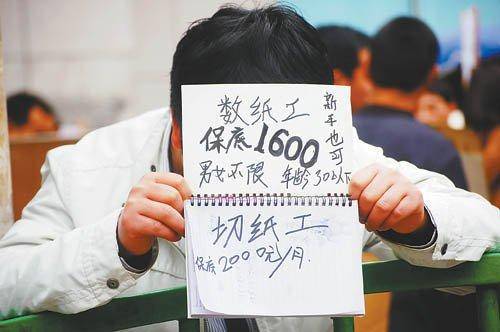 数纸工
新手也可
保底1600
男女不限 年龄30以下
切纸工
保底2000元/月.